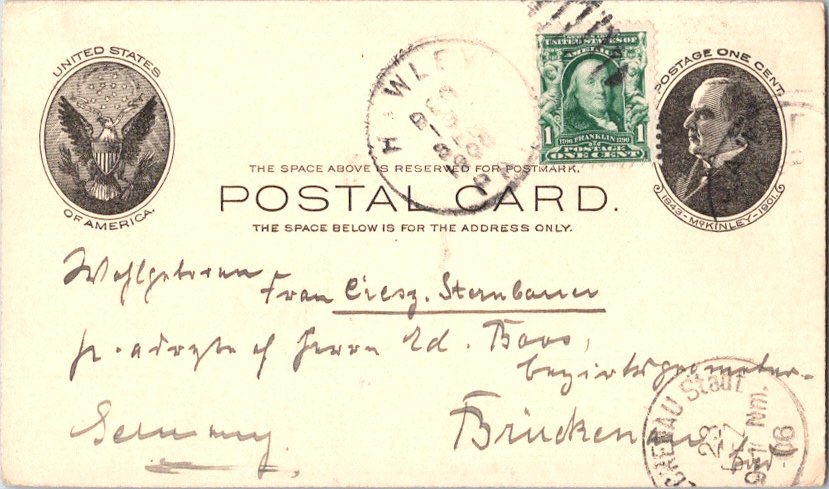 UNITED STATES
OF AMERICA.
HAWLEY
DEC
P
UNITED STATES OF
AMERICA
1 1706 FRANKLIN 1790 1
POSTAGE
ONE CENT
POSTAGE ONE CENT.
1843-McKINLEY-1901.
THE SPACE ABOVE IS RESERVED FOR POSTMARK.
POSTAL CARD.
THE SPACE BELOW IS FOR THE ADDRESS ONLY.
Wohlgeboren
Frau Sternbauer
Herrn Ed. Boos,
bezirksgeometer
Germany.
Brückenau
Stadt
23
Nm.
06